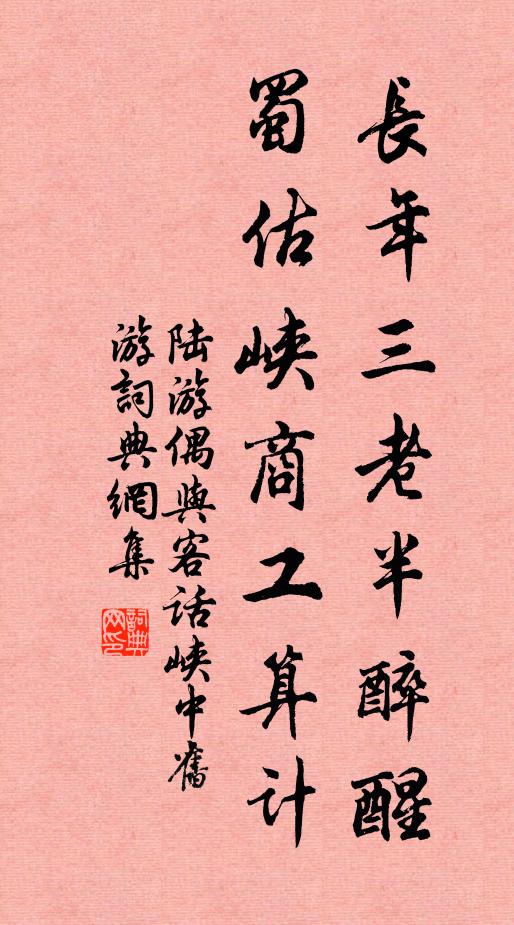 長年三老半醉醒
蜀估峽商工算計
陆游偶與客话峽中舊
游詞典網集
詞典
网印